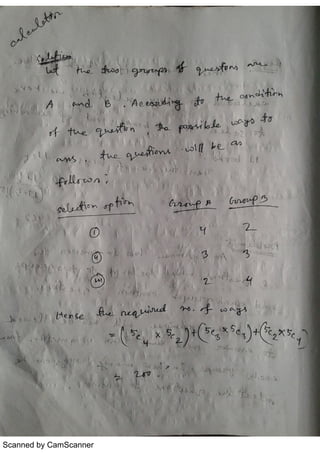 calculator
Solution
let the two groups of questons are
A and B. According to the condition
of the question the possible ways to
ans. the questions will be as
follows:
selection option Group A Group B
(i) 4 2
(ii) 3 3
(iii) 2 4
Hense the required no. of ways
= (5c4 × 5c2) + (5c3 × 5c3) + (5c2 × 5c4)
= 200
Scanned by CamScanner